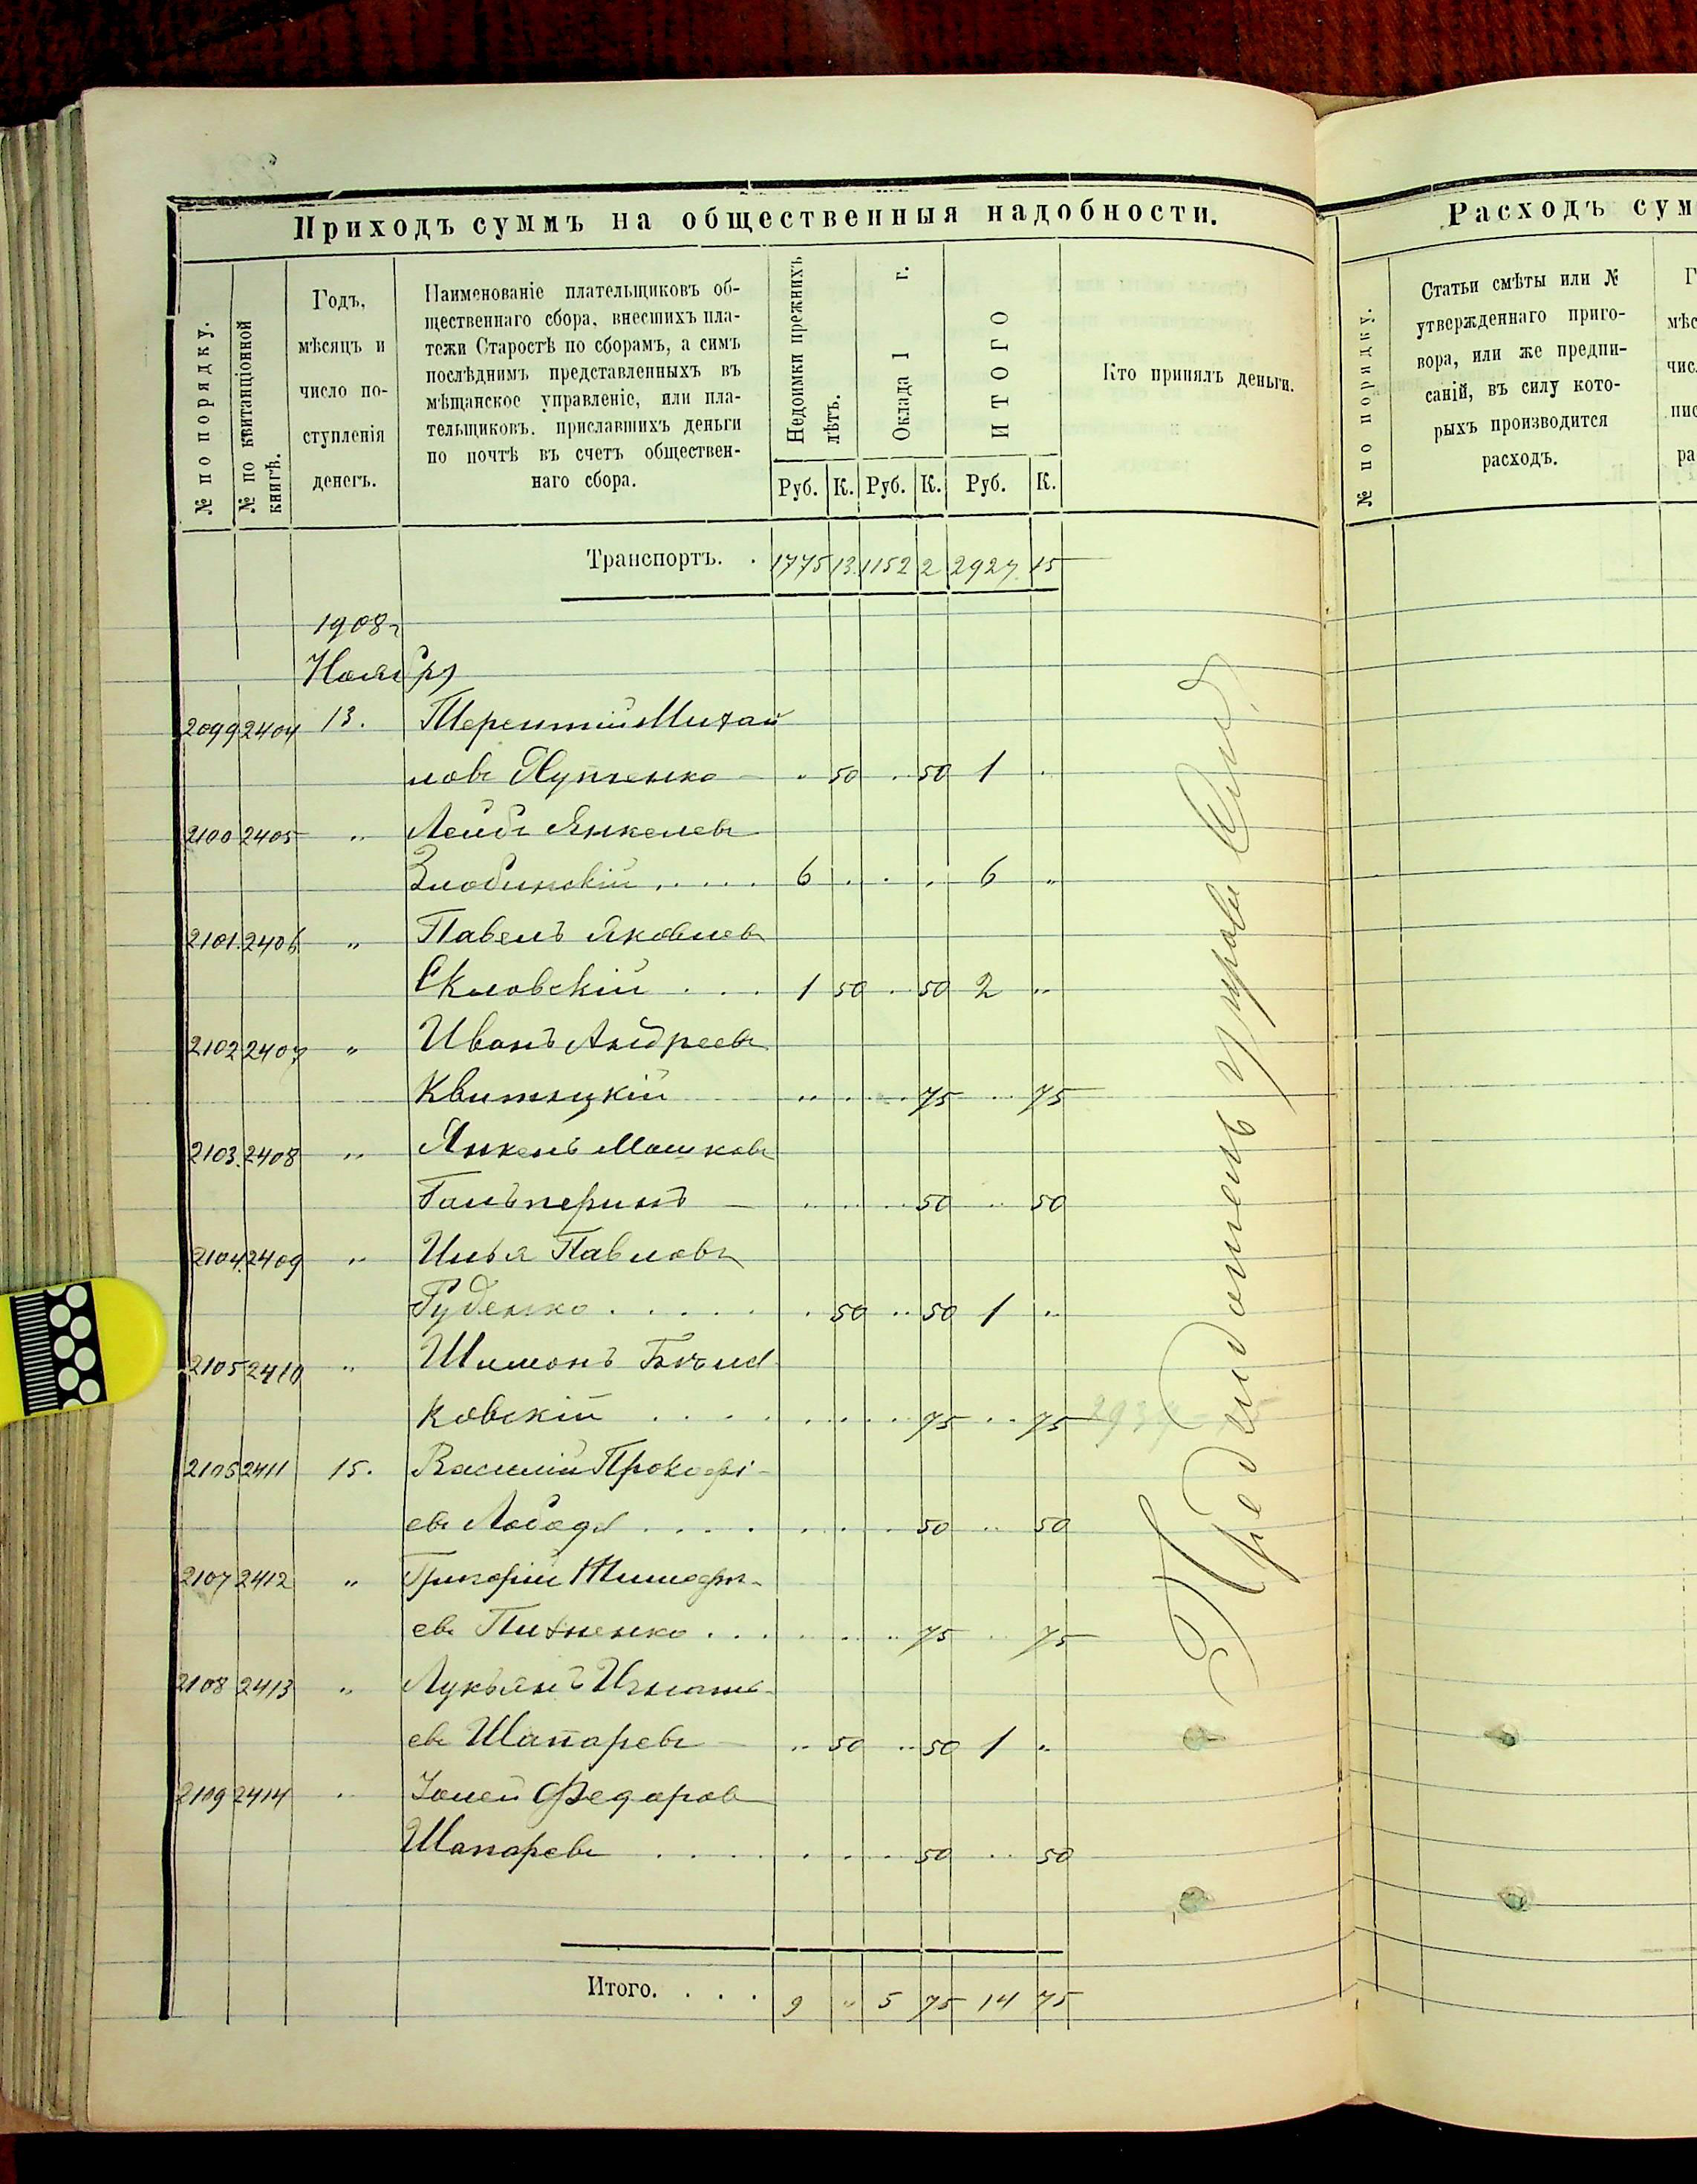 Приходъ суммъ на общественныя надобности.
№ по порядку.
№ по квитанціонной книгѣ.
Годъ,
мѣсяцъ и
число по-
ступленія
денегъ.
Наименованіе плательщиковъ об-
щественнаго сбора, внесшихъ пла-
тежи Старостѣ по сборамъ, а симъ
послѣднимъ представленныхъ въ
мѣщанское управленіе, или пла-
тельщиковъ, приславшихъ деньги
по почтѣ въ счетъ обществен-
наго сбора.
Недоимки прежнихъ
лѣтъ.
Оклада 1 г.
ИТОГО
Кто принялъ деньги.
Руб. К. Руб. К. Руб. К.
Транспортъ. . 1775 13 1152 2 2927 15
1908 г
Ноября
2099 2404 13. Терентій Михай
ловъ Купченко „ 50 „ 50 1 „
2100 2405 „ Лейба Янкелевъ
Злобинскій . . . . . 6 . . . 6 „
2101. 2406 „ Павелъ Яковлев
Скловскій . . . 1 50 . 50 2 „
2102 2407 „ Иванъ Андреевъ
Квитницкій „ . . 75 „ 75
2103. 2408 „ Янкель Мошковъ
Гальперинъ „ . . 50 „ 50
2104. 2409 „ Илья Павловъ
Руденко . . . . . . 50 „ 50 1 „
2105 2410 „ Шимонъ
ковскій . . . . . . . . 75 . . 75
2105 2411 15. Василій Прокофі-
евъ Лобода . . . . . . . . 50 „ 50
2107 2412 „ Григорій Тимофе-
евъ Пихненко . . . . . . 75 „ 75
2108 2413 „ Лукьянъ Игнатье-
евъ Шапаревъ „ 50 „ 50 1 „
2109 2414 „ Федоров
Шапаревъ . . . . . . . 50 „ 50
Итого. . . . 9 „ 5 75 14 75
Предъитогъ управы
Расходъ сум
№ по порядку.
Статьи смѣты или №
утвержденнаго приго-
вора, или же предпи-
саній, въ силу кото-
рыхъ производится
расходъ.
Г
мѣс
чис
пис
ра